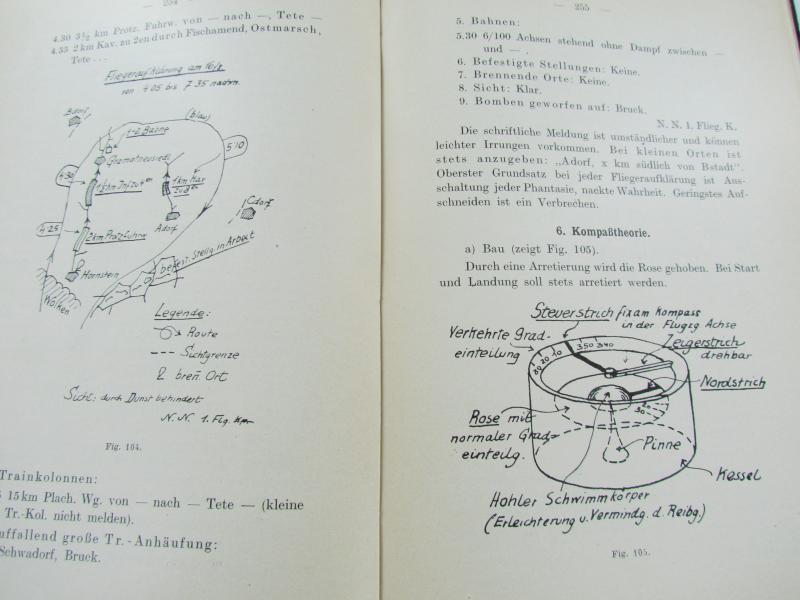 254
4.30 3½ km Protz. Fuhrw. von — nach —, Tete —
4.35 2 km Kav. zu 2en durch Fischamend, Ostmarsch,
Tete . . .
Fliegeraufklärung am 16/8
von 4 05 bis 7 35 nachm.
Bdorf
(blau)
t-é Baone
Gramatneusiedl
5 10
4 30
1 km Kav
zu 2en
Adorf
Cdorf
4 25
2 km Protzfuhrw
Hornstein
befest. Stellg. in Arbeit
Wolken
Legende:
Route
Sichtgrenze
breñ. Ort
Sicht: durch Dunst behindert
N. N. 1. Flg. Kp.
Fig. 104.
Trainkolonnen:
15 km Plach. Wg. von — nach — Tete — (kleine
Tr.-Kol. nicht melden).
uffallend große Tr.-Anhäufung:
Schwadorf, Bruck.
— 255 —
5. Bahnen:
5.30 6/100 Achsen stehend ohne Dampf zwischen —
und — .
6. Befestigte Stellungen: Keine.
7. Brennende Orte: Keine.
8. Sicht: Klar.
9. Bomben geworfen auf: Bruck.
N. N. 1. Flieg. K.
Die schriftliche Meldung ist umständlicher und können
leichter Irrungen vorkommen. Bei kleinen Orten ist
stets anzugeben: „Adorf, x km südlich von Bstadt".
Oberster Grundsatz bei jeder Fliegeraufklärung ist Aus-
schaltung jeder Phantasie, nackte Wahrheit. Geringstes Auf-
schneiden ist ein Verbrechen.
6. Kompaßtheorie.
a) Bau (zeigt Fig. 105).
Durch eine Arretierung wird die Rose gehoben. Bei Start
und Landung soll stets arretiert werden.
Steuerstrich fix am Kompass
in der Flugzg Achse
Verkehrte Grad-
einteilung
Zeigerstrich
drehbar
30 20 10 350 340
Nordstrich
Rose mit
normaler Grad-
einteilg.
20
30
Pinne
Kessel
Hohler Schwimmkörper
(Erleichterung u. Vermindg. d. Reibg.)
Fig. 105.